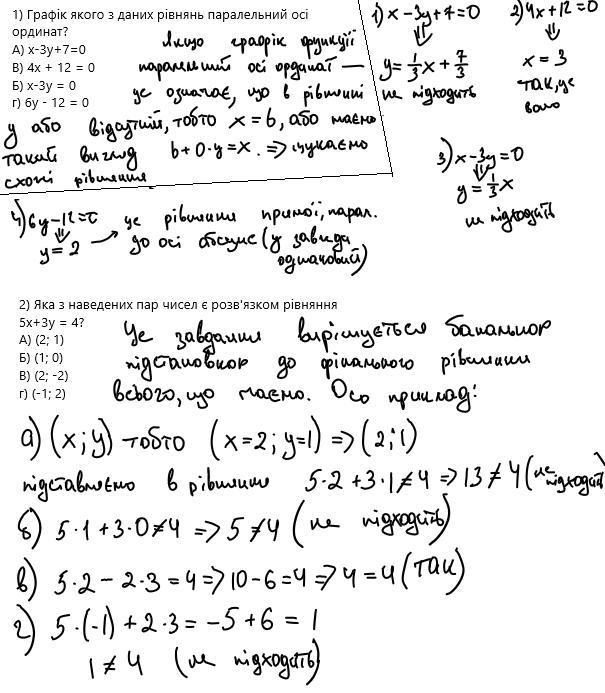 1) Графік якого з даних рівнянь паралельний осі
ординат?
А) x-3y+7=0
В) 4x + 12 = 0
Б) x-3y = 0
г) 6y - 12 = 0
Якщо графік функції
паралельний осі ординат —
це означає, що в рівнянні
y або відсутній, тобто x = b, або маємо
такий вигляд b+0·y=x. => шукаємо
схожі рівняння.
1) x-3y+7=0
⇓
y= 1/3 x + 7/3
не підходить
2) 4x+12=0
⇓
x = 3
так, це
воно
3) x-3y=0
⇓
y = 1/3 x
не підходить
4) 6y-12=0
⇓
y = 2
це рівняння прямої, парал.
до осі абсцис (y завжди
однаковий)
2) Яка з наведених пар чисел є розв'язком рівняння
5x+3y = 4?
А) (2; 1)
Б) (1; 0)
В) (2; -2)
г) (-1; 2)
Це завдання вирішується банальною
підстановкою до фінального рівняння
всього, що маємо. Ось приклад:
а) (x; y) - тобто (x=2; y=1) => (2; 1)
підставляємо в рівняння 5·2+3·1≠4 => 13≠4 (не підходить)
б) 5·1+3·0≠4 => 5≠4 (не підходить)
в) 5·2 - 2·3 = 4 => 10-6=4 => 4=4 (так)
г) 5·(-1) + 2·3 = -5+6 = 1
1≠4 (не підходить)